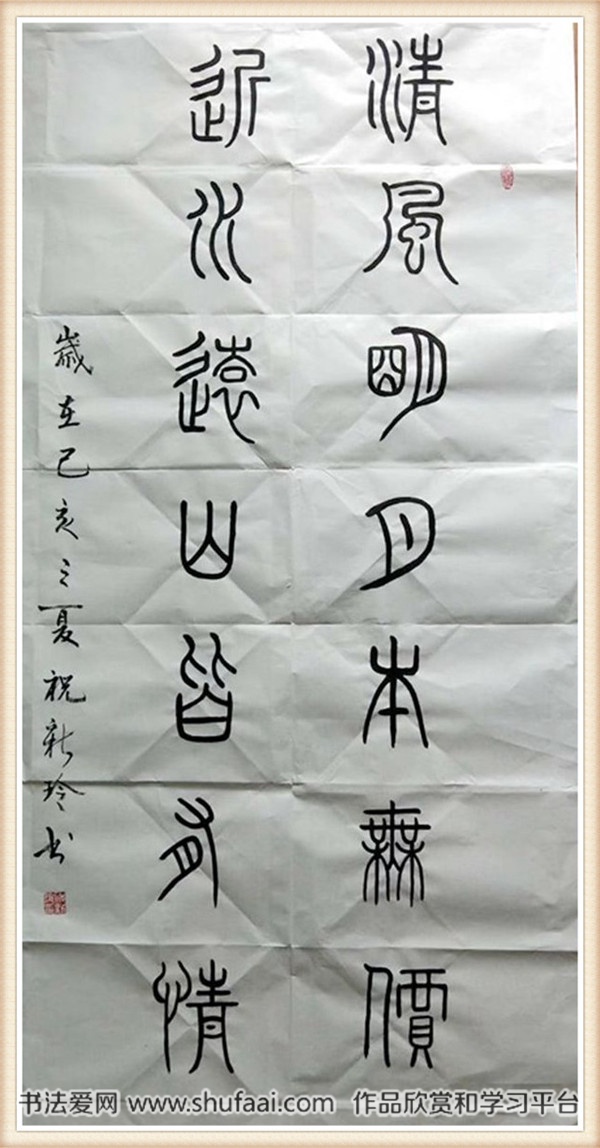 清風明月本無價
近水遠山皆有情
歲在己亥之夏祝新玲书
书法爱网 www.shufaai.com 作品欣赏和学习平台